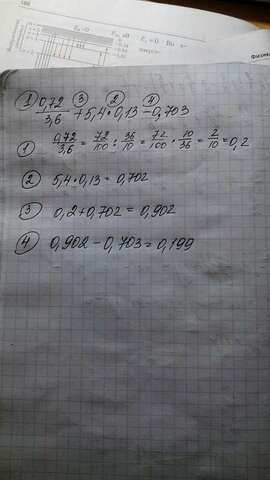 ① 0,72/3,6 ③ + 5,4 ② · 0,13 ④ - 0,703
① 0,72/3,6 = 72/100 : 36/10 = 72/100 · 10/36 = 2/10 = 0,2
② 5,4 · 0,13 = 0,702
③ 0,2 + 0,702 = 0,902
④ 0,902 - 0,703 = 0,199